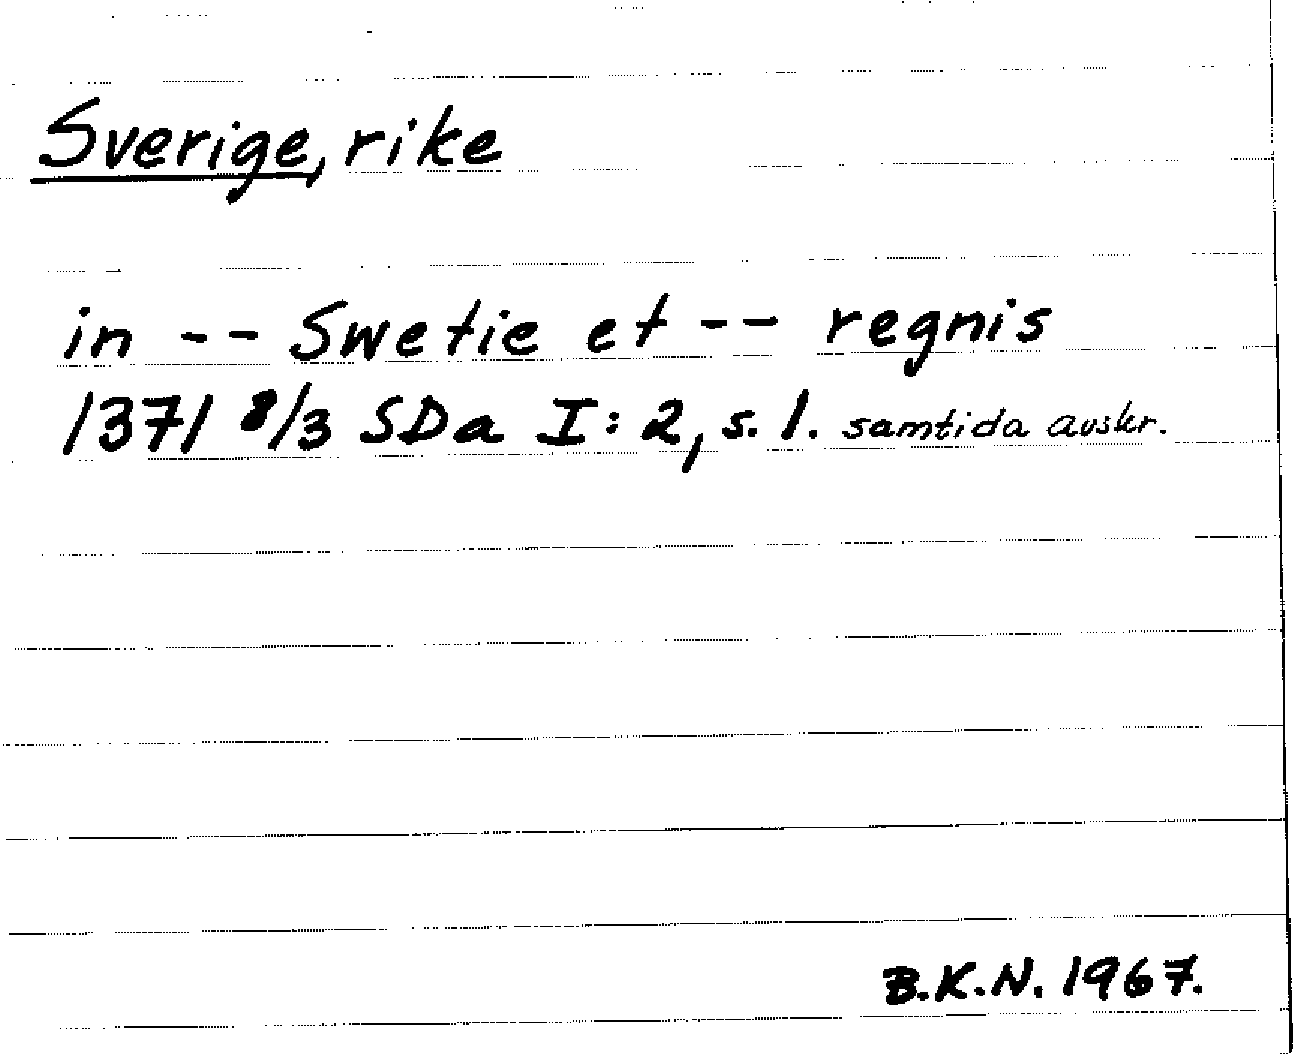 Sverige, rike
in -- Swetie et -- regnis
1371 8/3 SDa I: 2, s. 1. samtida avskr.
B.K.N. 1967.